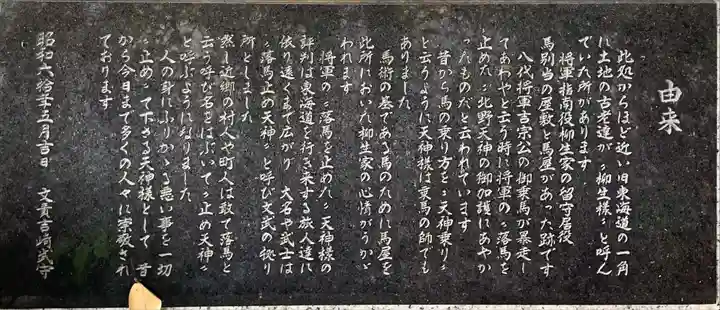 由来
此処からほど近い旧東海道の一角
に土地の古老達が〝柳生様〟と呼ん
でいた所があります
将軍指南役柳生家の留守居役
馬別当の屋敷と馬屋があった跡です
八代将軍吉宗公の御乗馬が暴走し
てあわやと云う時に将軍の〝落馬を
止めた〟北野天神の御加護にあやか
ったものだと云われています
昔から馬の乗り方を〝天神乗り〟
と云うように天神様は乗馬の師でも
ありました
馬術の基である馬のために馬屋を
此所においた柳生家の心情がうかゞ
われます
将軍の〝落馬を止めた〟天神様の
評判は東海道を行き来する旅人達に
依り遠くまで広がり 大名や武士は
〝落馬止め天神〟と呼び文武の祈り
所としました
然し近郷の村人や町人は敢て落馬と
云う呼び名をはぶいて〝止め天神〟
と呼ぶようになりました
人の身にふりかゝる悪い事を一切
〝止め〟て下さる天神様として 昔
から今日まで多くの人々に崇敬され
ております
昭和六拾年五月吉日 文責吉崎武守